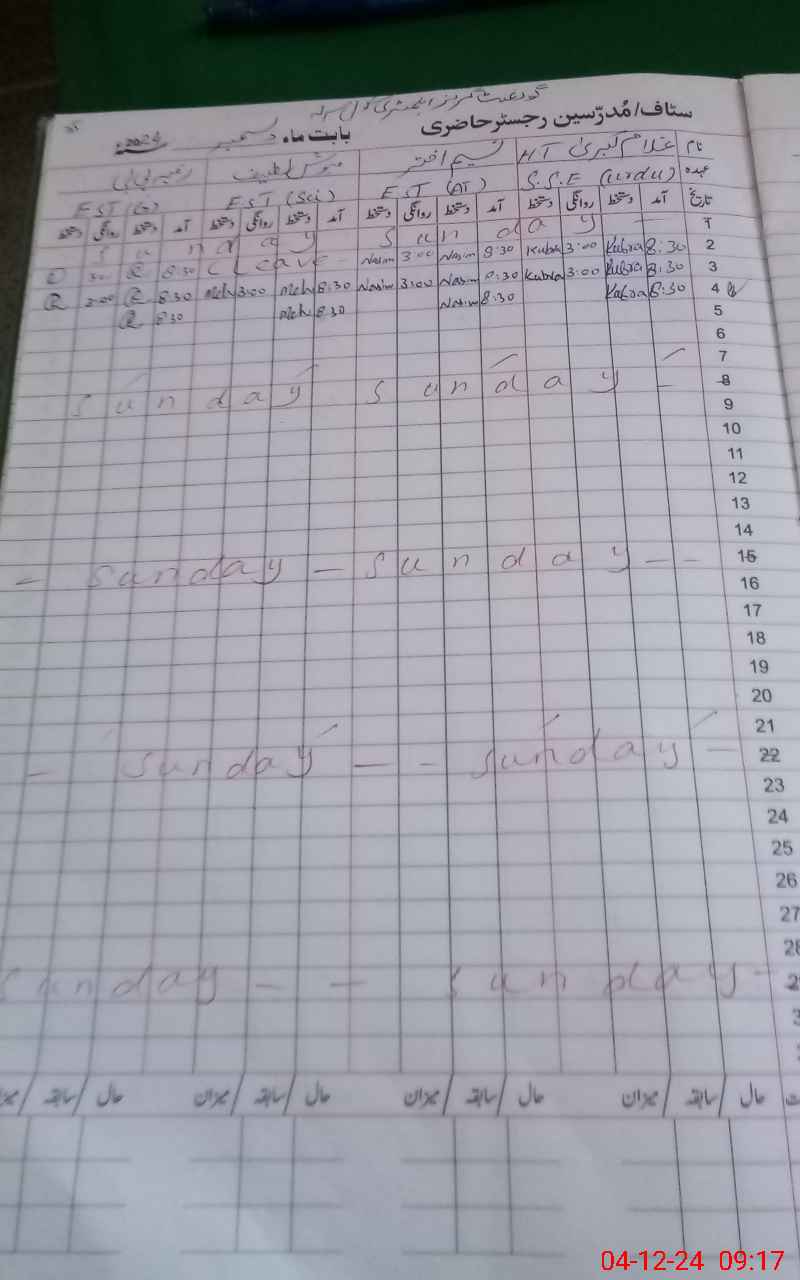 گورنمنٹ گرلز ایلیمنٹری سکول
سٹاف/مُدرّسین رجسٹر حاضری بابت ماہ دسمبر 2024ء
نام غلام کبریٰ HT نسیم اختر
عہدہ S.S.E (Urdu) EST (AT) EST (Sci) EST (G)
تاریخ آمد دستخط روانگی دستخط آمد دستخط روانگی دستخط آمد دستخط روانگی دستخط آمد دستخط روانگی دستخط
1 Sunday Sunday
2 8:30 Kubra 3:00 Kubra 8:30 Nasim 3:00 Nasim C Leave 8:30
3 8:30 Kubra 3:00 Kubra 8:30 Nasim 3:00 Nasim 8:30 3:00 8:30 3:00
4 8:30 Kubra 8:30 Nasim 8:30 8:30
5
6
7
8 Sunday Sunday
9
10
11
12
13
14
15 - Sunday - Sunday - -
16
17
18
19
20
21
22 - Sunday - - Sunday -
23
24
25
26
27
28
2 Sunday - - Sunday -
3
حال / سابقہ / میزان حال / سابقہ / میزان حال / سابقہ / میزان حال / سابقہ /
04-12-24 09:17